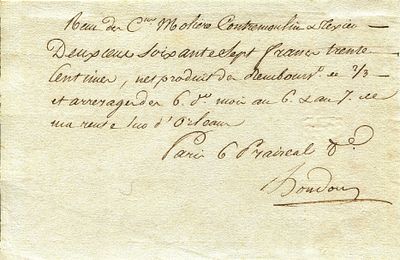 Recu des C.ens Moliere Contremoulin & Lexier
Deux ceux soixante Sept francs trente
Centimes, net produit de Rembours.t de 2/3
et arrerages des 6 d.ers mois an 6. & an 7. de
ma rente sur d'Orleans
Paris 6 Prairéal 8.e
Houdon